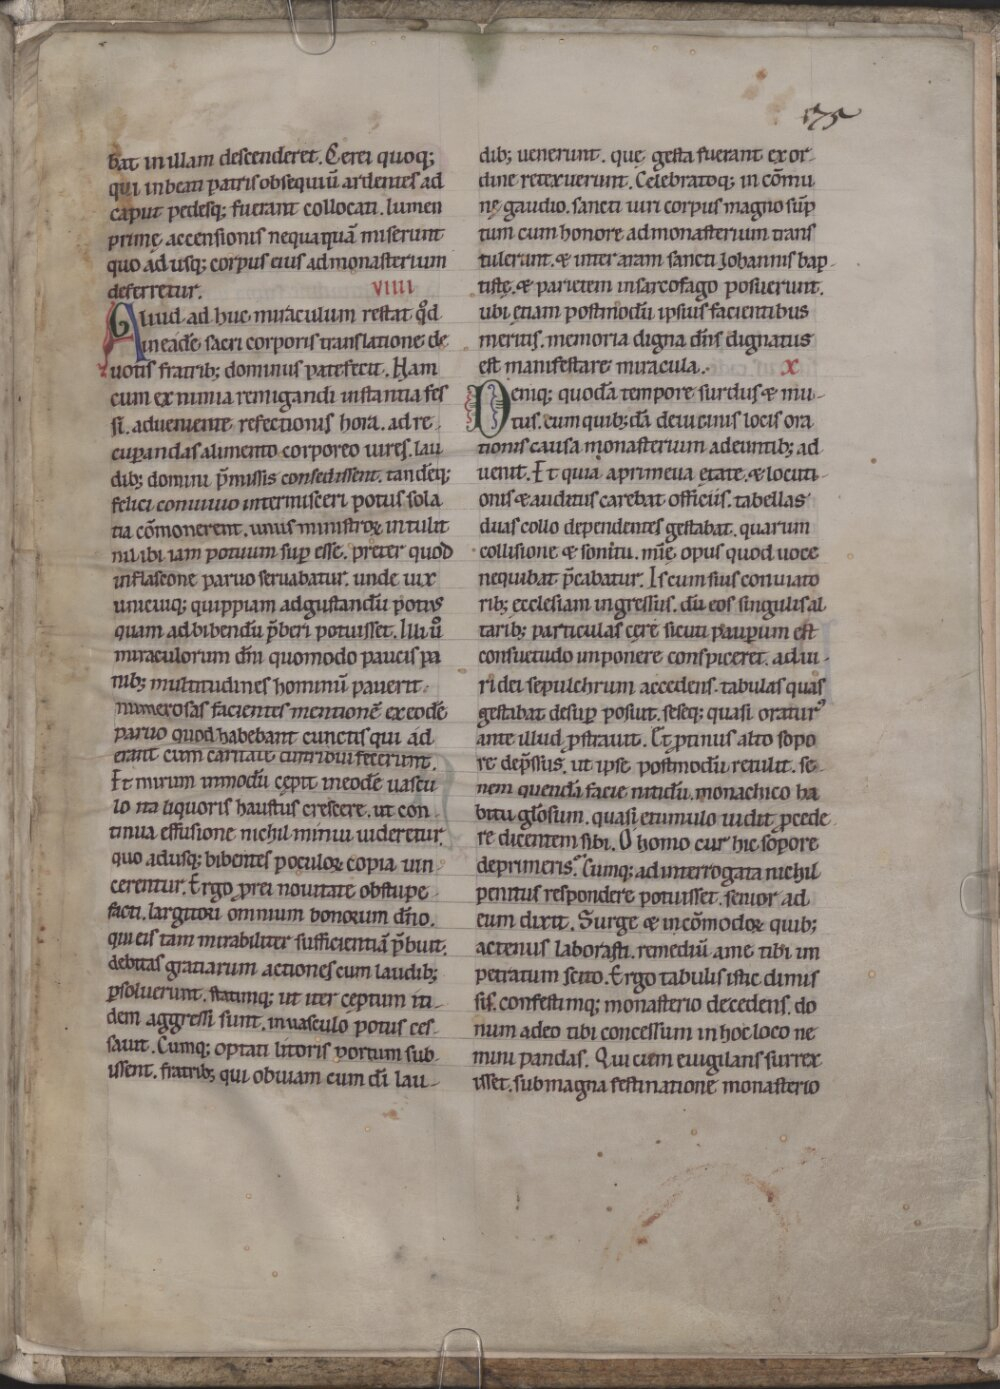 575
bat in illam descenderet. Cerei quoq;
qui in beati patris obsequiū ardentes ad
caput pedesq; fuerant collocati. lumen
primę accensionis nequaquā miserunt
quo adusq; corpus eius ad monasterium
deferretur. VIIII
Aliud ad huc miraculum restat qđ
in eadē sacri corporis translatione de
uotis fratrib; dominus patefecit. Nam
cum ex nimia remigandi instantia fes
si. adueniente refectionis hora. ad re-
cuꝑandas alimento corporeo uires. lau
dib; domini p̄missis consedissent. tandēq;
felici conuiuio intermisceri potus sola
tia cōmonerent. unus ministroꝝ intulit
nil ibi iam potuum suꝑ esse. preter quod
in flascone paruo seruabatur. unde uix
unicuiq; quippiam ad gustandū potius
quam ad bibendū p̄beri potuisset. Illi ů
miraculorum dn̄i quomodo paucis pa
nib; multitudines hominū pauerit.
numerosas facientes mentionē ex eodē
paruo quod habebant cunctis qui ad
erant cum caritate contribui fecerunt.
Et mirum in modū cępit in eodē uascu
lo ita liquoris haustus crescere. ut con
tinua effusione nichil minui uideretur.
quo adusq; bibentes poculoꝝ copia uin
cerentur. Ergo ꝓ rei nouitate obstupe
facti. largitori omnium bonorum dn̄o.
qui eis tam mirabiliter sufficientiā p̄buit.
debitas gratiarum actiones cum laudib;
ꝑsoluerunt. statimq; ut iter ceptum iti-
dem aggressi sunt. in uasculo potus ces-
sauit. Cumq; optati litoris portum sub-
issent. fratrib; qui obuiam cum dī lau-
dib; uenerunt. que gesta fuerant ex or-
dine retexuerunt. Celebratoq; in cōmu
ne gaudio. sancti uiri corpus magno sūp
tum cum honore ad monasterium trans
tulerunt. & inter aram sancti Iohannis bap-
tistę. & parietem in sarcofago posuerunt.
ubi etiam postmodū ipsius facientibus
meritis. memoria digna dn̄s dignatus
est manifestare miracula. X
Deniq; quodā tempore surdus & mu-
tus. cum quib;dā de uicinis locis ora
tionis causa monasterium adeuntib; ad
uenit. Et quia a primeua etate. & locuti-
onis & auditus carebat officiis. tabellas
duas collo dependentes gestabat. quarum
collisione & sonitu. mīę. opus quod uoce
nequibat p̄cabatur. Is cum suis conuiato
rib; ecclesiam ingressus. dū eos singulis al
tarib; particulas cere sicuti pauꝑum est
consuetudo imponere conspiceret. ad ui-
ri dei sepulchrum accedens. tabulas quas
gestabat desuꝑ posuit. seseq; quasi oratur9
ante illud ꝓstrauit. Et ꝓtinus alto sopo
re dep̄ssus. ut ipse postmodū retulit. se-
nem quendā facie nitidū. monachico ha
bitu gl̄osum. quasi e tumulo uidit ꝓcede
re dicentem sibi. O homo cur hic sopore
deprimeris? Cumq; ad interrogata nichil
penitus respondere potuisset. senior ad
eum dixit. Surge & incōmodoꝝ quib;
actenus laborasti. remediū a me tibi im
petratum scito. Ergo tabulis istic dimis
sis. confestimq; monasterio decedens. do
num adeo tibi concessum in hoc loco ne
mini pandas. Qui cum euigilans surrex
isset. sub magna festinatione monasterio